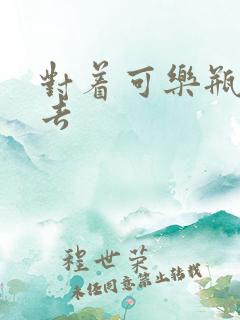 對着可樂瓶
去
程世荣
未经同意禁止转载